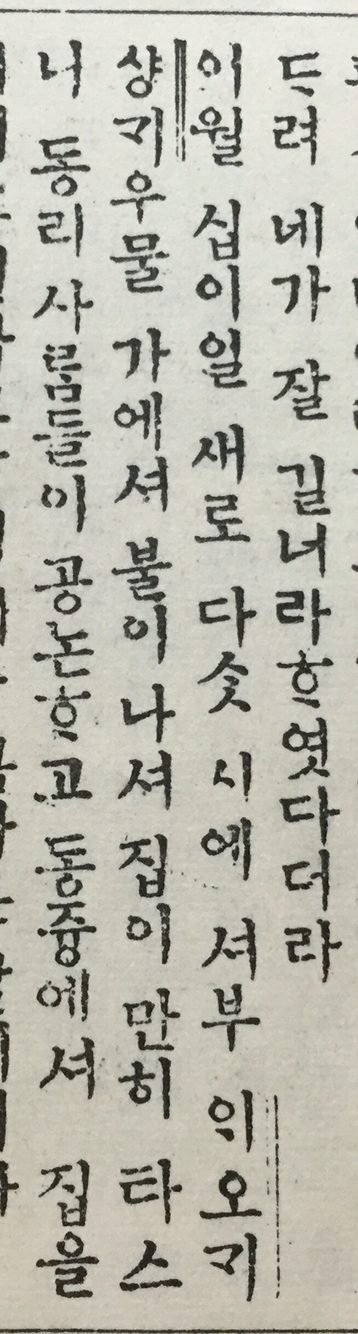 드려 네가 잘 길너라ᄒᆞ엿다더라
이월 십이일 새로 다ᄉᆞᆺ 시에 셔부 의오ᄀᆡ
샹ᄀᆡ우물 가에셔 불이 나셔 집이 만히 타스
니 동리 사ᄅᆞᆷ들이 공논ᄒᆞ고 동즁에셔 집을